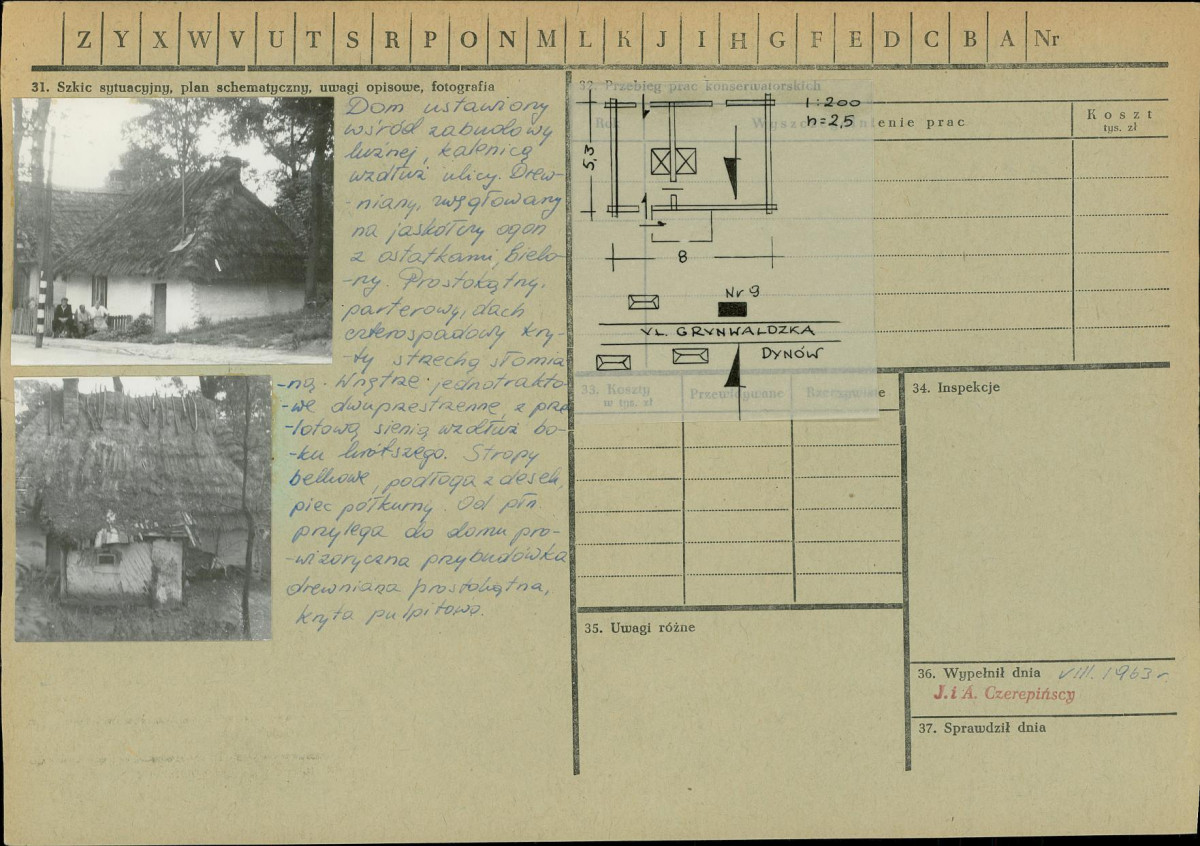 Z Y X W V U T S R P O N M L K J I H G F E D C B A Nr
31. Szkic sytuacyjny, plan schematyczny, uwagi opisowe, fotografia
Dom ustawiony
wśród zabudowy
luźnej, kalenicą
wzdłuż ulicy. Drew-
-niany, węgłowany
na jaskółczy ogon
z ostatkami, bielo-
-ny. Prostokątny,
parterowy, dach
czterospadowy kry-
-ty strzechą słomia
-ną. Wnętrze jednotrakto-
-we dwuprzestrzenne, z prze
-lotową sienią wzdłuż bo-
-ku krótszego. Stropy
belkowe, podłoga z desek,
piec półkurny. Od płn.
przylega do domu pro-
-wizoryczna przybudówka
drewniana prostokątna,
kryta pulpitowo.
32. Przebieg prac konserwatorskich
Rok
Wyszczególnienie prac
Koszt
tys. zł
1:200
h=2,5
5,3
8
Nr 9
UL. GRUNWALDZKA
DYNÓW
33. Koszty
w tys. zł
Przewidywane
Rzeczywiste
34. Inspekcje
35. Uwagi różne
36. Wypełnił dnia VIII. 1963 r.
J. i A. Czerepińscy
37. Sprawdził dnia